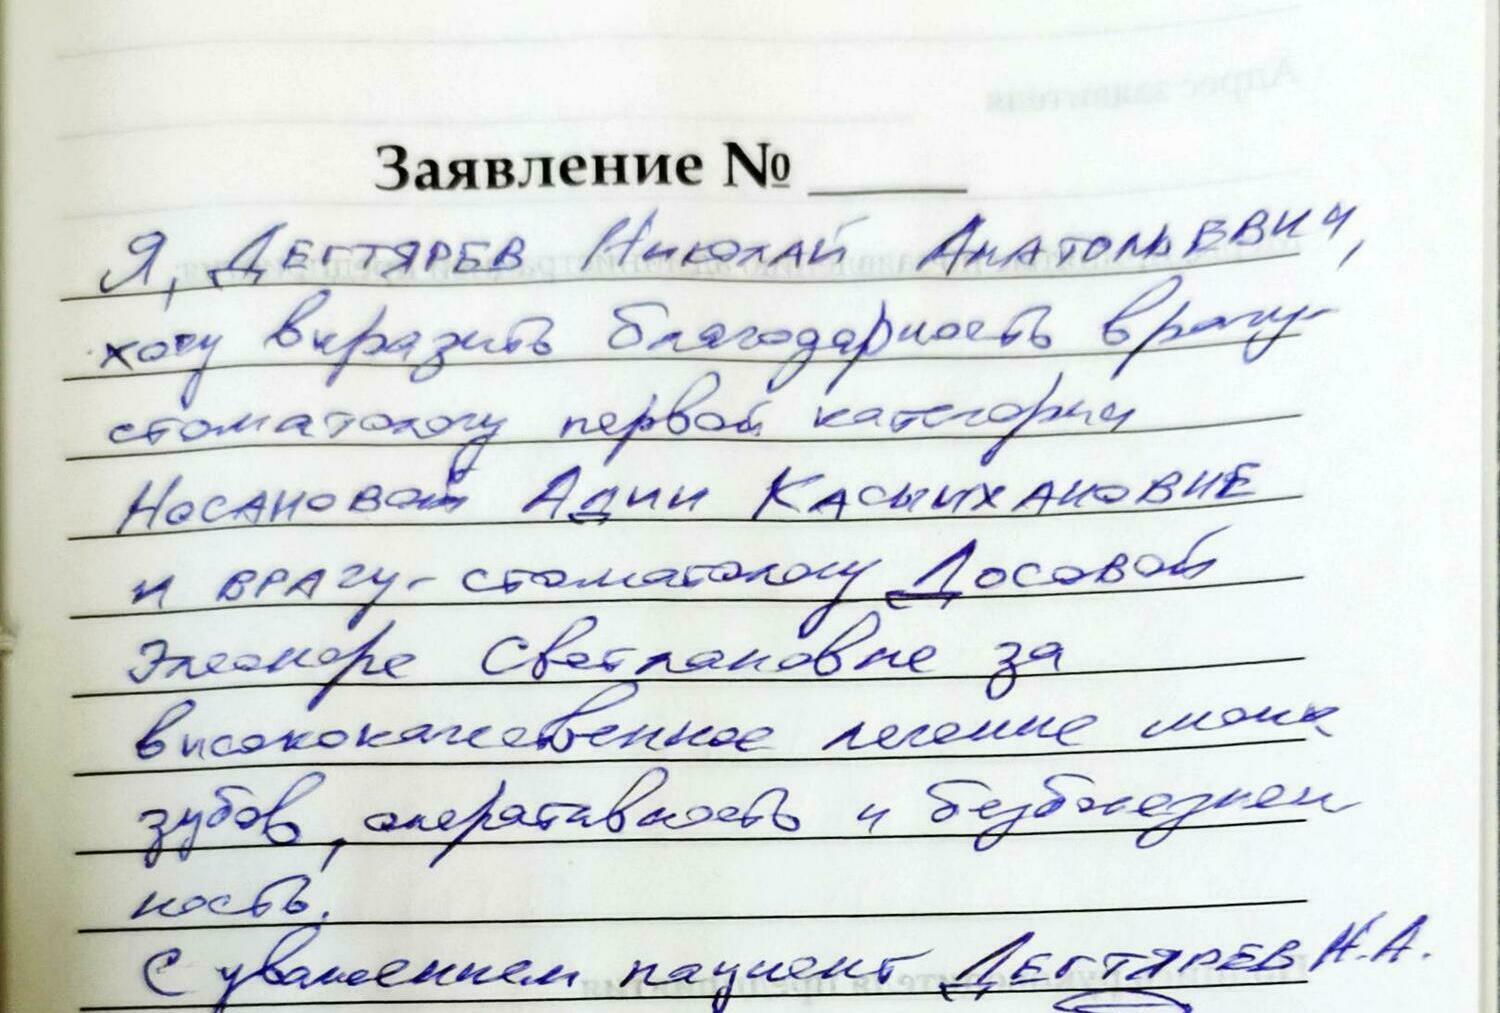 Заявление № ____
Я, Дегтярев Николай Анатольевич,
хочу выразить благодарность врачу-
стоматологу первой категории
Носановой Адии Касымхановне
и врачу-стоматологу Досовой
Элеоноре Светлановне за
высококачественное лечение моих
зубов, оперативность и безболезнен
ность.
С уважением пациент Дегтярев Н.А.